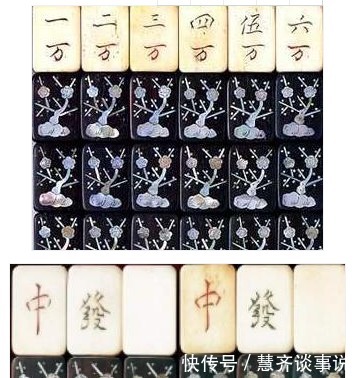 一 二 三 四 伍 六
万 万 万 万 万 万
中 發 中 發
快传号 / 慧齐谈事说